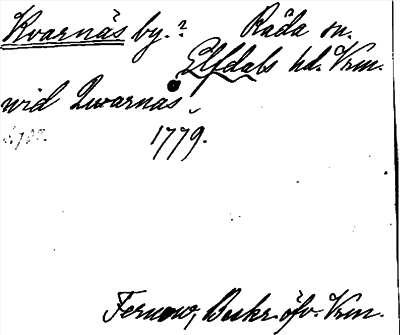 Kvarnäs by.? Råda sn.
Elfdals hd. Vrm.
wid Qwarnas,
1779.
Fernow, Beskr. öfv. Vrm.